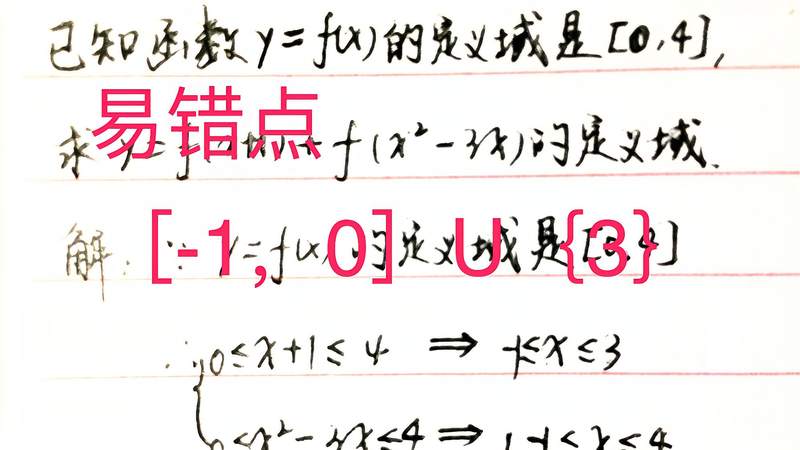 已知函数y=f(x)的定义域是[0,4],
易错点
求 f(x²-3x)的定义域.
[-1, 0] U {3}
解: ∵ y=f(x)的定义域是[0,4]
∴ 0≤x+1≤4 ⇒ -1≤x≤3
0≤x²-3x≤4 ⇒ -1≤x≤4